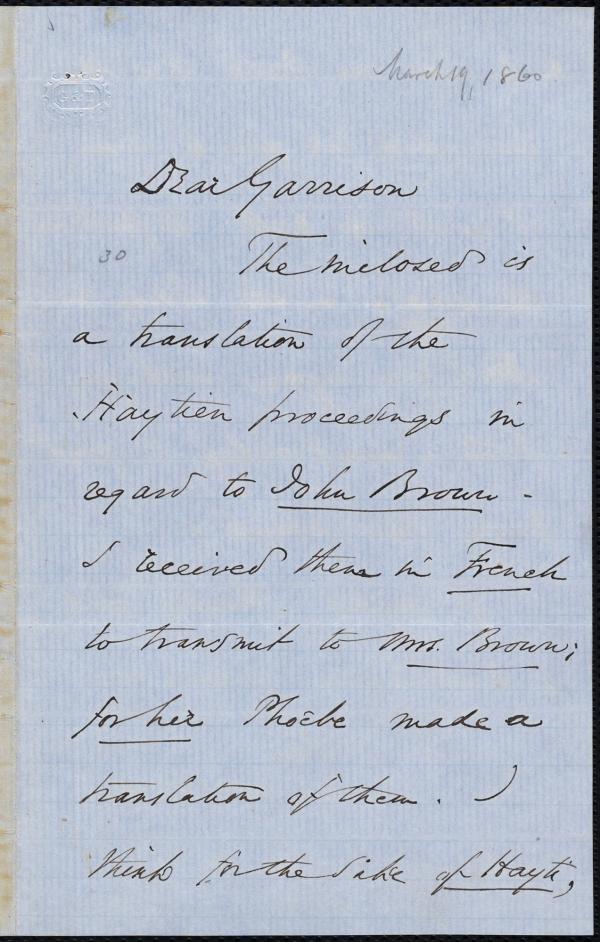 March 19, 1860
Dear Garrison
30
The inclosed is
a translation of the
Haytien proceedings in
regard to John Brown -
I received them in French
to transmit to Mrs. Brown;
for her Phoebe made a
translation of them. I
think for the sake of Hayti,